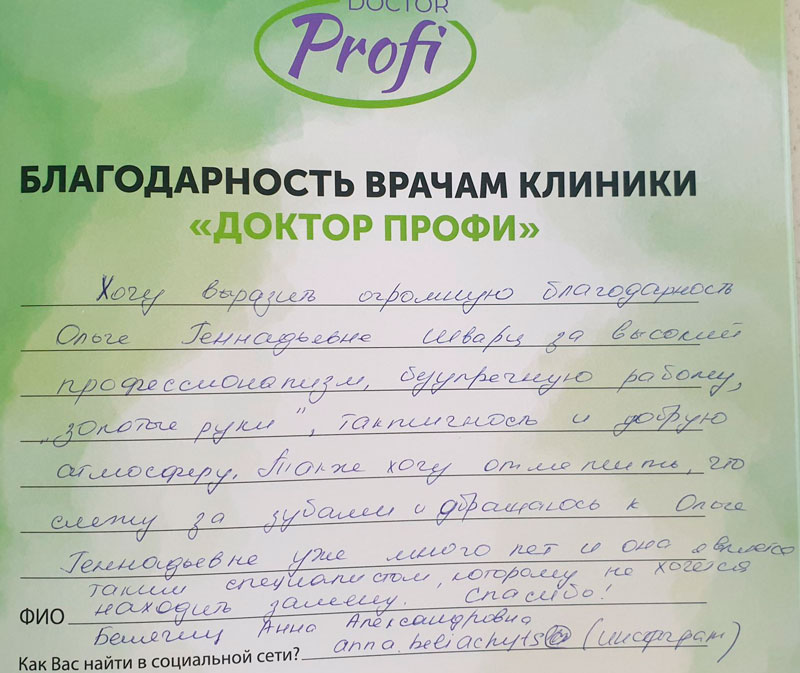 DOCTOR
Profi
БЛАГОДАРНОСТЬ ВРАЧАМ КЛИНИКИ
«ДОКТОР ПРОФИ»
Хочу выразить огромную благодарность
Ольге Геннадьевне Шварц за высокий
профессионализм, безупречную работу,
„золотые руки", тактичность и добрую
атмосферу. Также хочу отметить, что
слежу за зубами и обращаюсь к Ольге
Геннадьевне уже много лет и она является
таким специалистом, которому не хочется
находить замену. Спасибо!
ФИО
Анна Александровна
Как Вас найти в социальной сети? anna.beliachyts (инстаграм)